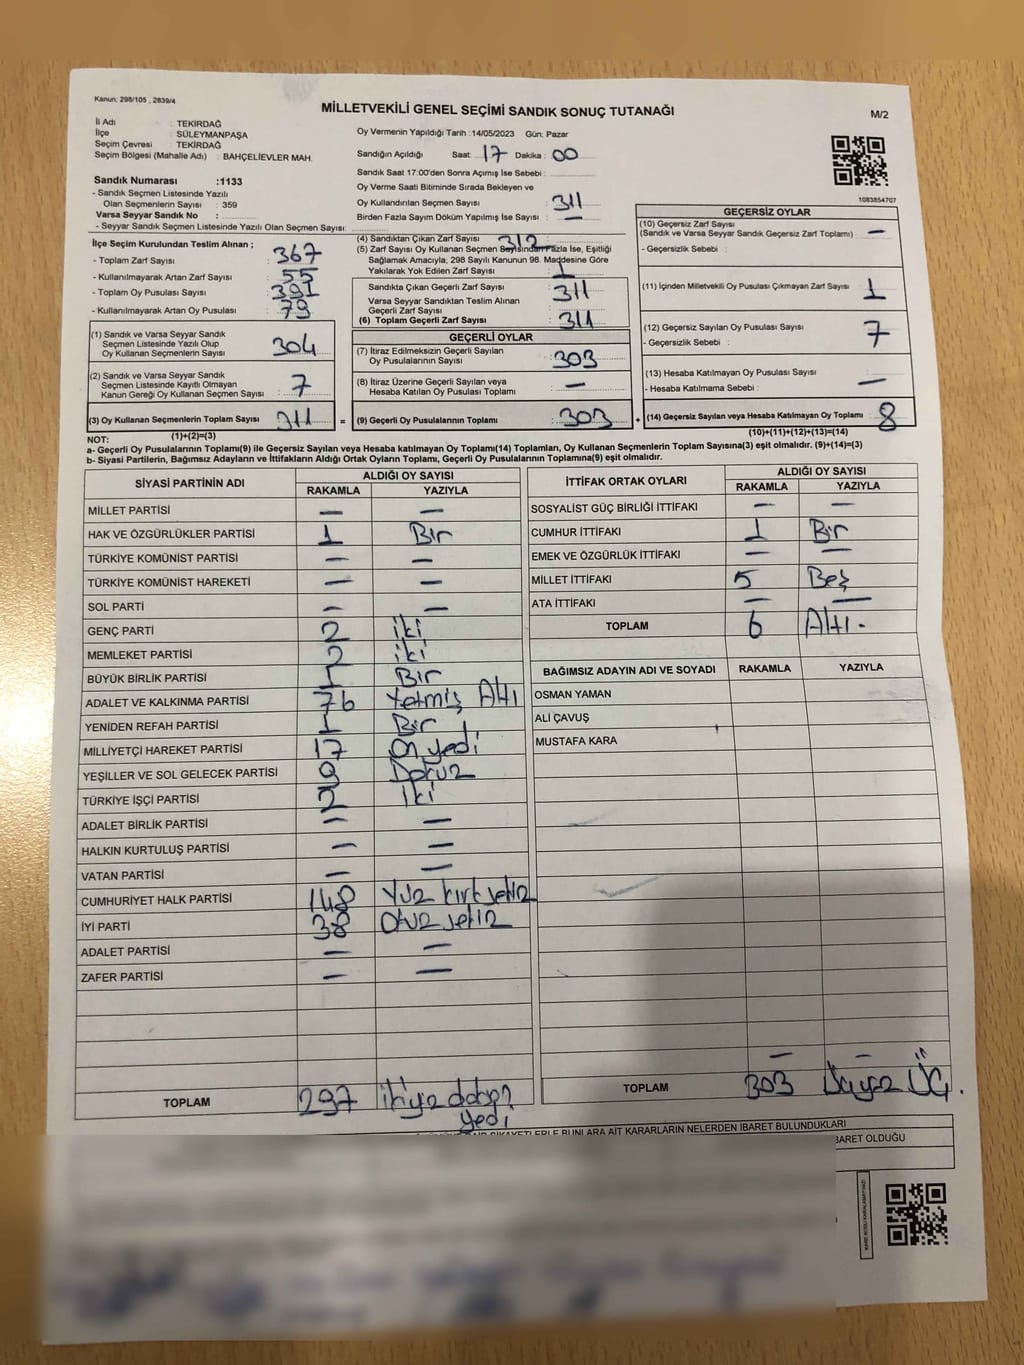 Kanun: 298/105 , 2839/4
MİLLETVEKİLİ GENEL SEÇİMİ SANDIK SONUÇ TUTANAĞI
M/2
İl Adı : TEKİRDAĞ
İlçe : SÜLEYMANPAŞA
Seçim Çevresi : TEKİRDAĞ
Seçim Bölgesi (Mahalle Adı) : BAHÇELİEVLER MAH.
Sandık Numarası :1133
- Sandık Seçmen Listesinde Yazılı
Olan Seçmenlerin Sayısı : 359
Varsa Seyyar Sandık No :
- Seyyar Sandık Seçmen Listesinde Yazılı Olan Seçmen Sayısı:
Oy Vermenin Yapıldığı Tarih :14/05/2023 Gün: Pazar
Sandığın Açıldığı Saat: 17 Dakika : 00
Sandık Saat 17:00'den Sonra Açımış İse Sebebi :
Oy Verme Saati Bitiminde Sırada Bekleyen ve
Oy Kullandırılan Seçmen Sayısı : 311
Birden Fazla Sayım Döküm Yapılmış İse Sayısı : —
1083854707
İlçe Seçim Kurulundan Teslim Alınan ;
- Toplam Zarf Sayısı : 367
- Kullanılmayarak Artan Zarf Sayısı : 55
- Toplam Oy Pusulası Sayısı : 391
- Kullanılmayarak Artan Oy Pusulası : 79
(1) Sandık ve Varsa Seyyar Sandık
Seçmen Listesinde Yazılı Olup
Oy Kullanan Seçmenlerin Sayısı : 304
(2) Sandık ve Varsa Seyyar Sandık
Seçmen Listesinde Kayıtlı Olmayan
Kanun Gereği Oy Kullanan Seçmen Sayısı : 7
(3) Oy Kullanan Seçmenlerin Toplam Sayısı : 311 =
(1)+(2)=(3)
(4) Sandıktan Çıkan Zarf Sayısı : 312
(5) Zarf Sayısı Oy Kullanan Seçmen Sayısından Fazla İse, Eşitliği
Sağlamak Amacıyla; 298 Sayılı Kanunun 98. Maddesine Göre
Yakılarak Yok Edilen Zarf Sayısı : 1
Sandıkta Çıkan Geçerli Zarf Sayısı : 311
Varsa Seyyar Sandıktan Teslim Alınan
Geçerli Zarf Sayısı :
(6) Toplam Geçerli Zarf Sayısı : 311
GEÇERLİ OYLAR
(7) İtiraz Edilmeksizin Geçerli Sayılan
Oy Pusulalarının Sayısı : 303
(8) İtiraz Üzerine Geçerli Sayılan veya
Hesaba Katılan Oy Pusulası Toplamı : —
(9) Geçerli Oy Pusulalarının Toplamı : 303 +
GEÇERSİZ OYLAR
(10) Geçersiz Zarf Sayısı
(Sandık ve Varsa Seyyar Sandık Geçersiz Zarf Toplamı) : —
- Geçersizlik Sebebi :
(11) İçinden Milletvekili Oy Pusulası Çıkmayan Zarf Sayısı : 1
(12) Geçersiz Sayılan Oy Pusulası Sayısı : 7
- Geçersizlik Sebebi :
(13) Hesaba Katılmayan Oy Pusulası Sayısı : —
- Hesaba Katılmama Sebebi :
(14) Geçersiz Sayılan veya Hesaba Katılmayan Oy Toplamı : 8
(10)+(11)+(12)+(13)=(14)
NOT:
a- Geçerli Oy Pusulalarının Toplamı(9) ile Geçersiz Sayılan veya Hesaba Katılmayan Oy Toplamı(14) Toplamları, Oy Kullanan Seçmenlerin Toplam Sayısına(3) eşit olmalıdır. (9)+(14)=(3)
b- Siyasi Partilerin, Bağımsız Adayların ve İttifakların Aldığı Ortak Oyların Toplamı, Geçerli Oy Pusulalarının Toplamına(9) eşit olmalıdır.
SİYASİ PARTİNİN ADI ALDIĞI OY SAYISI
RAKAMLA YAZIYLA
MİLLET PARTİSİ — —
HAK VE ÖZGÜRLÜKLER PARTİSİ 1 Bir
TÜRKİYE KOMÜNİST PARTİSİ — —
TÜRKİYE KOMÜNİST HAREKETİ — —
SOL PARTİ — —
GENÇ PARTİ 2 iki
MEMLEKET PARTİSİ 2 iki
BÜYÜK BİRLİK PARTİSİ 1 Bir
ADALET VE KALKINMA PARTİSİ 76 Yetmiş Altı
YENİDEN REFAH PARTİSİ 1 Bir
MİLLİYETÇİ HAREKET PARTİSİ 17 On yedi
YEŞİLLER VE SOL GELECEK PARTİSİ 9 Dokuz
TÜRKİYE İŞÇİ PARTİSİ 2 iki
ADALET BİRLİK PARTİSİ — —
HALKIN KURTULUŞ PARTİSİ — —
VATAN PARTİSİ — —
CUMHURİYET HALK PARTİSİ 148 Yüz kırk sekiz
İYİ PARTİ 38 Otuz sekiz
ADALET PARTİSİ — —
ZAFER PARTİSİ — —
TOPLAM 297 ikiyüz doksan
yedi
İTTİFAK ORTAK OYLARI ALDIĞI OY SAYISI
RAKAMLA YAZIYLA
SOSYALİST GÜÇ BİRLİĞİ İTTİFAKI — —
CUMHUR İTTİFAKI 1 Bir
EMEK VE ÖZGÜRLÜK İTTİFAKI — —
MİLLET İTTİFAKI 5 Beş
ATA İTTİFAKI — —
TOPLAM 6 Altı.
BAĞIMSIZ ADAYIN ADI VE SOYADI RAKAMLA YAZIYLA
OSMAN YAMAN
ALİ ÇAVUŞ
MUSTAFA KARA
— —
TOPLAM 303 Üçyüz Üç.
ŞİKAYETLERLE BUNLARA AİT KARARLARIN NELERDEN İBARET BULUNDUKLARI
İBARET OLDUĞU